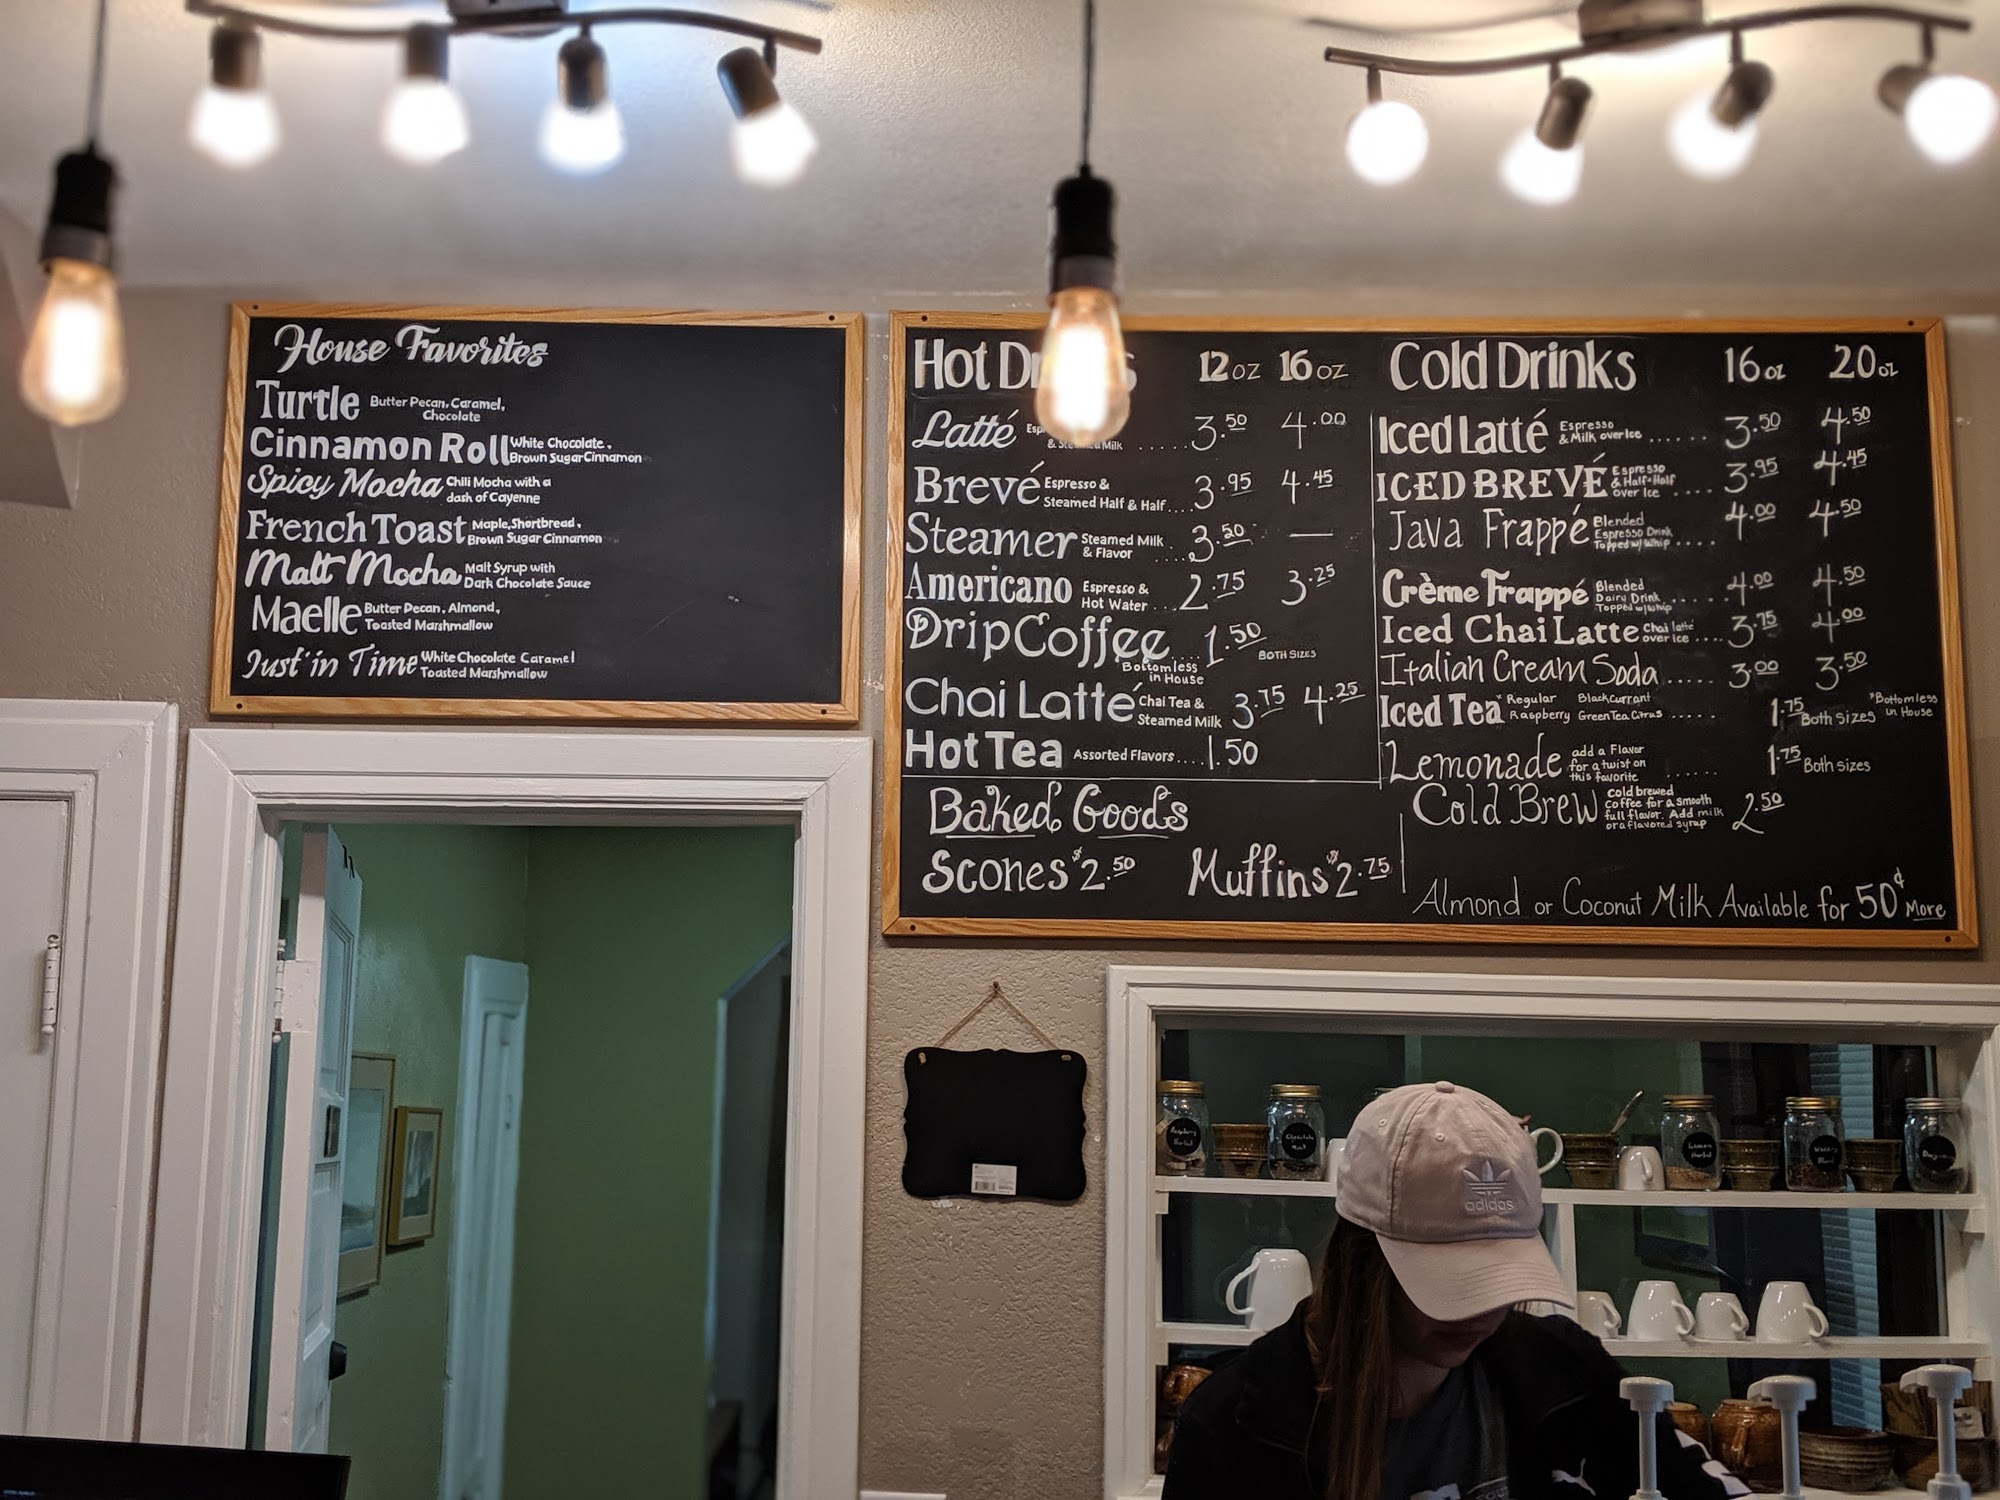 House Favorites
Turtle Butter Pecan, Caramel,
Chocolate
Cinnamon Roll White Chocolate,
Brown Sugar Cinnamon
Spicy Mocha Chili Mocha with a
dash of Cayenne
French Toast Maple, Shortbread,
Brown Sugar Cinnamon
Malt Mocha Malt Syrup with
Dark Chocolate Sauce
Maelle Butter Pecan, Almond,
Toasted Marshmallow
Just in Time White Chocolate Caramel
Toasted Marshmallow
Hot 12 oz 16 oz
Latté
& Steamed Milk ..... 3.50 4.00
Brevé Espresso &
Steamed Half & Half .... 3.95 4.45
Steamer Steamed Milk
& Flavor .... 3.50 —
Americano Espresso &
Hot Water ... 2.75 3.25
Drip Coffee .... 1.50 BOTH SIZES
Bottomless
in House
Chai Latté Chai Tea &
Steamed Milk 3.75 4.25
Hot Tea Assorted Flavors .... 1.50
Baked Goods
Scones $2.50 Muffins $2.75
Cold Drinks 16 oz 20 oz
Iced Latté Espresso
& Milk over Ice ...... 3.50 4.50
ICED BREVÉ Espresso
& Half+Half
over Ice .... 3.95 4.45
Java Frappé Blended
Espresso Drink
Topped w/ Whip .... 4.00 4.50
Crème Frappé Blended
Dairy Drink
Topped w/ whip ...... 4.00 4.50
Iced Chai Latte Chai latte
over ice .... 3.75 4.00
Italian Cream Soda ..... 3.00 3.50
Iced Tea * Regular Blackcurrant
Raspberry Green Tea Citrus ..... 1.75 Both Sizes
*Bottomless
in House
Lemonade add a Flavor
for a twist on
this favorite ...... 1.75 Both sizes
Cold Brew cold brewed
coffee for a smooth
full flavor. Add milk
or a flavored syrup 2.50
Almond or Coconut Milk Available for 50¢ More
Raspberry
Herbal
Chocolate
Lemon
Herbal
adidas